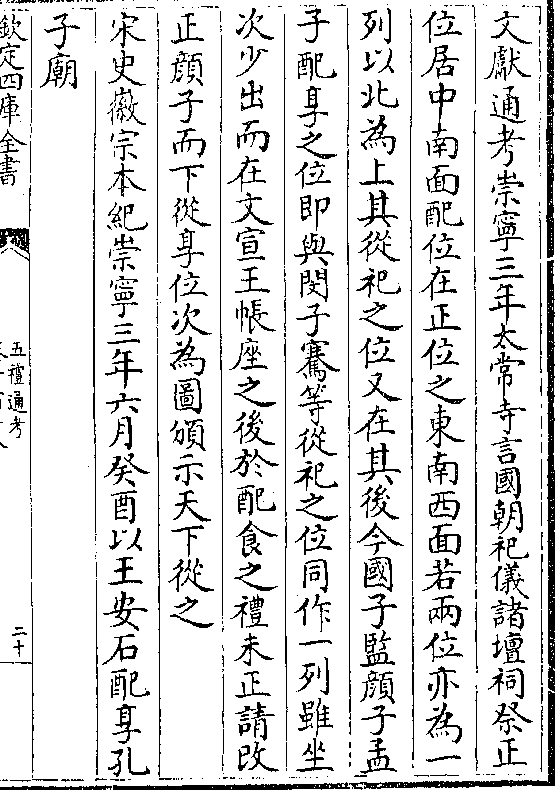 文獻通考崇寧三年太常寺言國朝祀儀諸壇祠祭正
位居中南面配位在正位之東南西面若兩位亦為一
列以北為上其從祀之位又在其後今國子監顔子孟
子配享之位即與閔子騫等從祀之位同作一列雖坐
次少出而在文宣王帳座之後於配食之禮未正請改
正顔子而下從享位次為圖頒示天下從之
宋史徽宗本紀崇寧三年六月癸酉以王安石配享孔
子廟
欽定四庫全書
五禮通考
二十